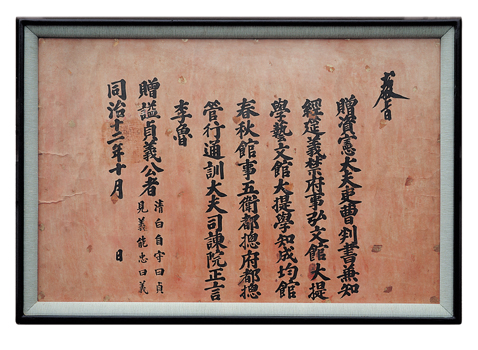 教旨
贈資憲大夫吏曹判書兼知
經筵義禁府事弘文館大提
學藝文館大提學知成均館
春秋館事五衛都摠府都摠
管行通訓大夫司諫院正言
李魯
贈諡貞義公者
清白自守曰貞
見義能忠曰義
同治十二年十月 日